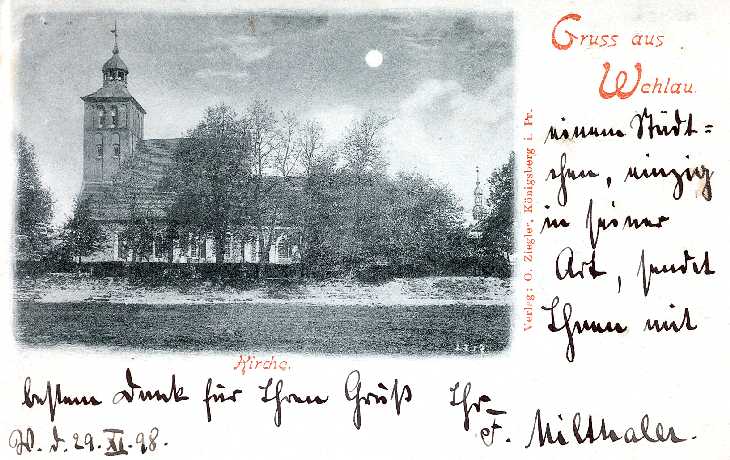 Gruss aus
Wehlau.
einem Städt=
chen, einzig
in seiner
Art, sendet
Ihnen mit
Verlag: O. Ziegler, Königsberg i. Pr.
Kirche.
bestem Dank für Ihren Gruß Ihr
F. Milthaler.
W. d. 29. XI. 98.